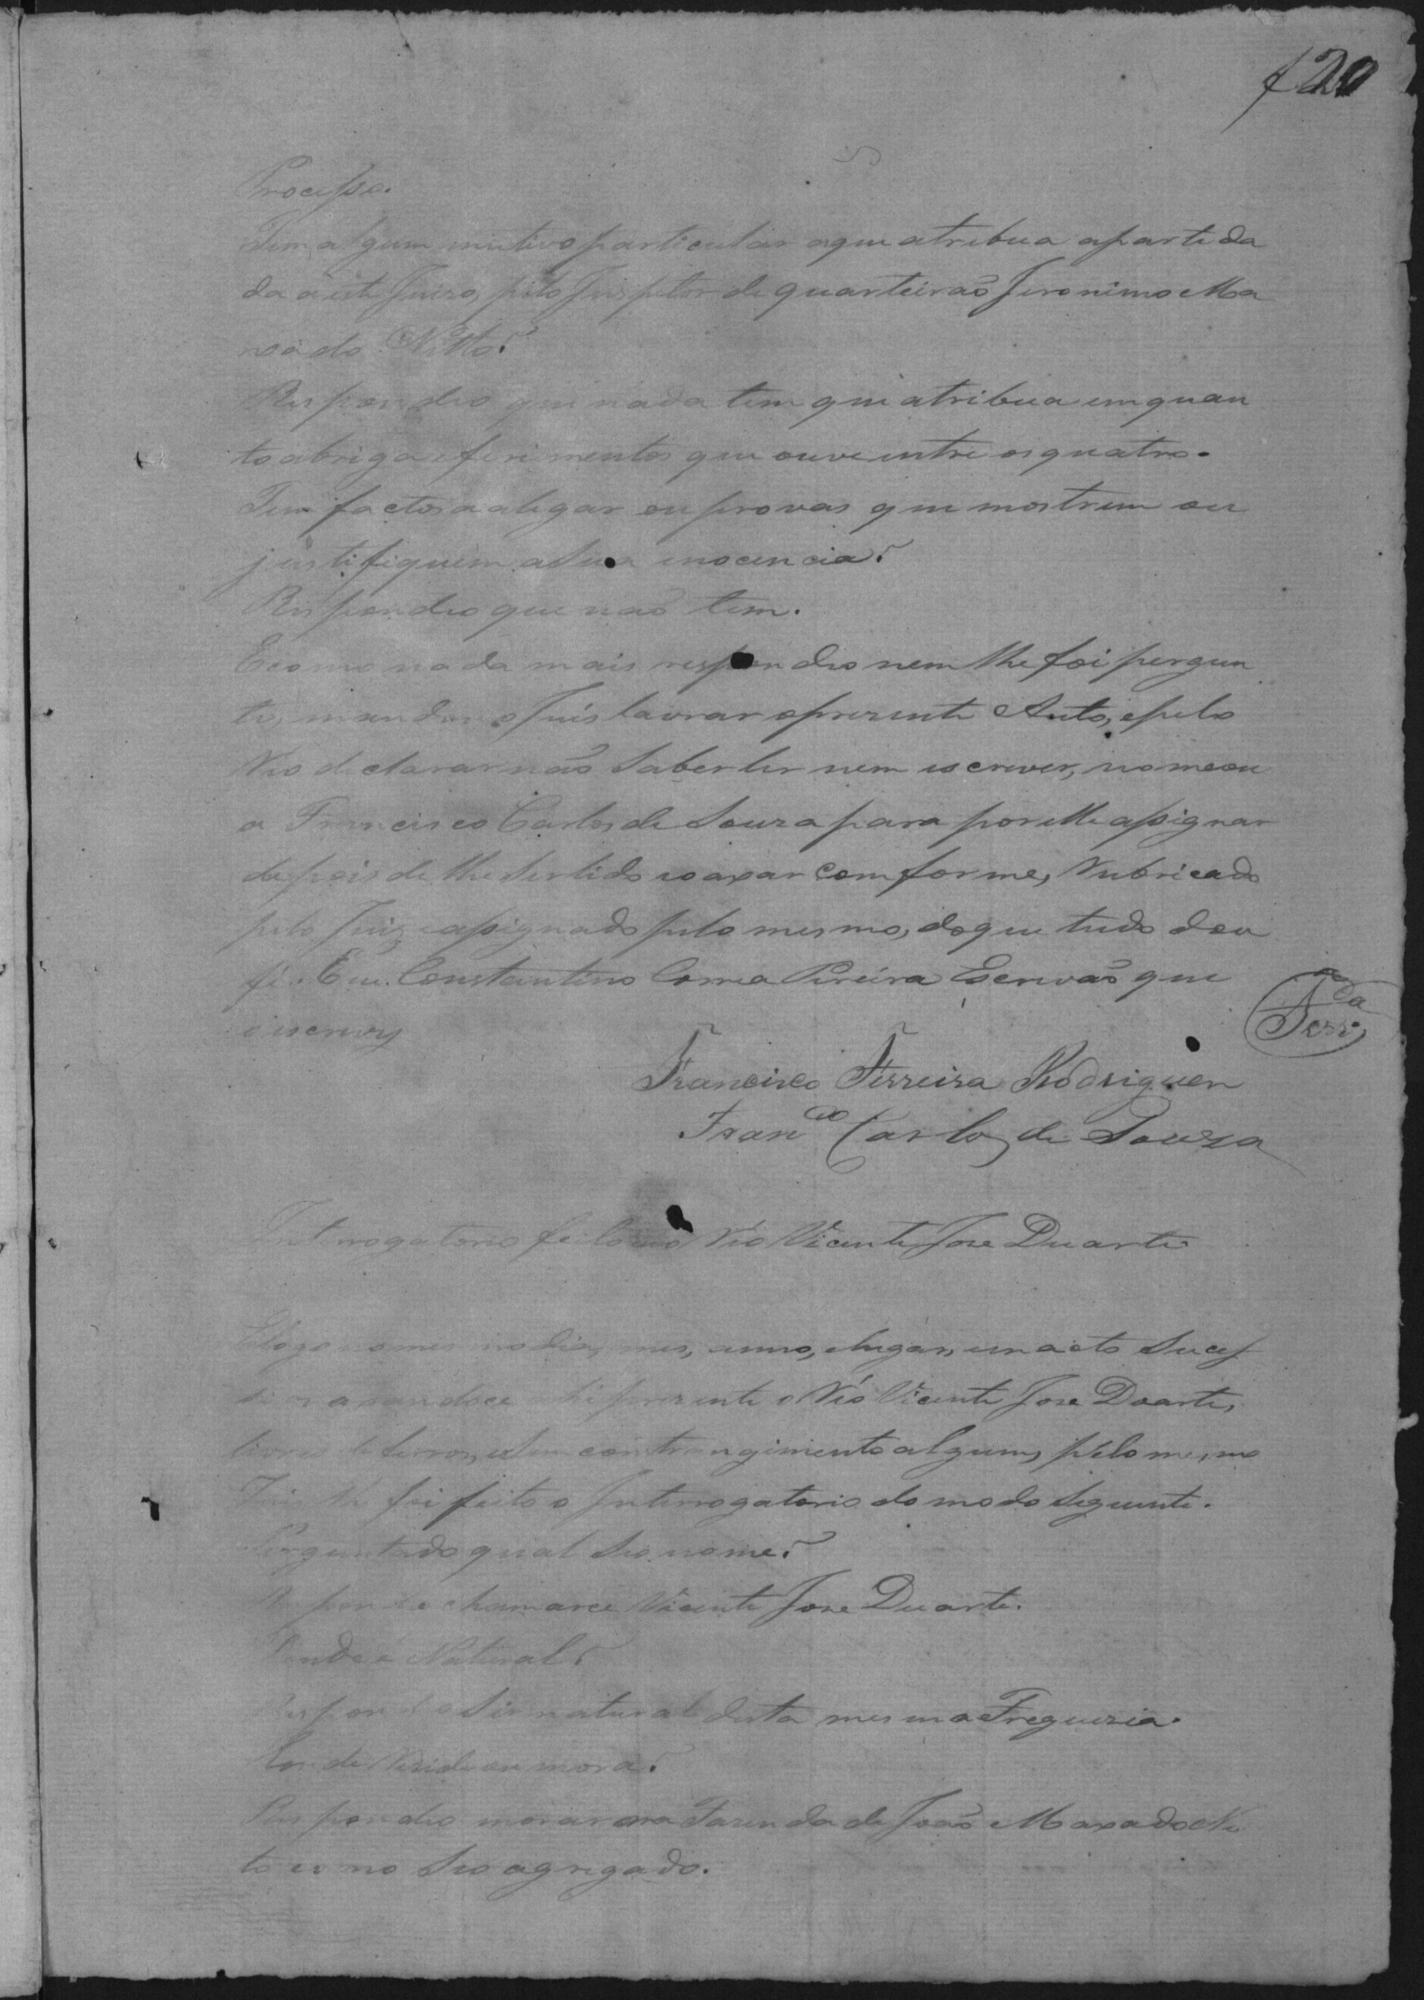 f 20
Processo.
Tem algum mutivo particular aque atribua aparte da
da a este Juiso, pelo Inspetor de quarteirão Jeronimo Ma
xado Netto?
Respondeo que nada tem que atribua emquan
to abriga e ferimentos que ouve entre os quatro.
Tem factos a alegar ou provas que mostrem ou
justifiquem a Sua inocencia?
Respondeo que não tem.
E como nada mais respondeo nem lhe foi pergun
to, mandou o Juis lavrar o prezente Auto, e pelo
Reo declarar não Saber ler nem escrever, nomeou
a Francisco Carlos de Souza para por elle assignar
depois de lhe Ser lido e o axar comforme, Rubricado
pelo Juiz e assignado pelo mesmo, do que tudo dou
fé. Eu Constantino Correa Pereira Escrivão que
o escrevy
Francisco Ferreira Rodrigues
Fran.co Carlos de Souza
Interrogatorio feito ao Réo Vicente Jose Duarte
E logo no mesmo dia, mes, anno, e lugar, em acto Suces
sivo axandoce ahi prezente o Réo Vicente Jose Duarte,
livres de ferros, e Sem contrangimento algum, pelo mesmo
Juis lhe foi feito o Interrogatorio do modo Seguinte.
Perguntado qual Seo nome?
Respondeo chamarce Vicente Jose Duarte.
D'onde é Natural?
Respondeo Ser natural desta mesma Freguezia.
Aonde Reside ou mora?
Respondeo morar na Fazenda de João Maxado Ne
to como Seo agregado.